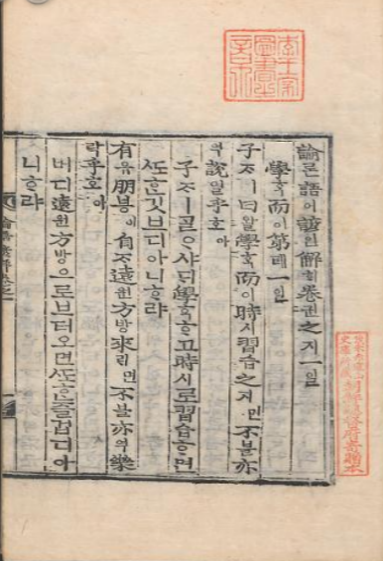 論론語어諺언解해卷권之지一일
學ᄒᆞᆨ而이第뎨一일
子ᄌᆞㅣ曰왈學ᄒᆞᆨ而이時시習습之지면不블亦
역說열乎호아
子ᄌᆞㅣᄀᆞᆯᄋᆞ샤ᄃᆡ學ᄒᆞᆨᄒᆞ고時시로習습ᄒᆞ면
ᄯᅩᄒᆞᆫ깃브디아니ᄒᆞ랴
有유朋붕이自ᄌᆞ遠원方방來ᄅᆡ면不블亦역樂
락乎호아
버디遠원方방으로브터오면ᄯᅩᄒᆞᆫ즐겁디아
니ᄒᆞ랴
論語諺解卷之一